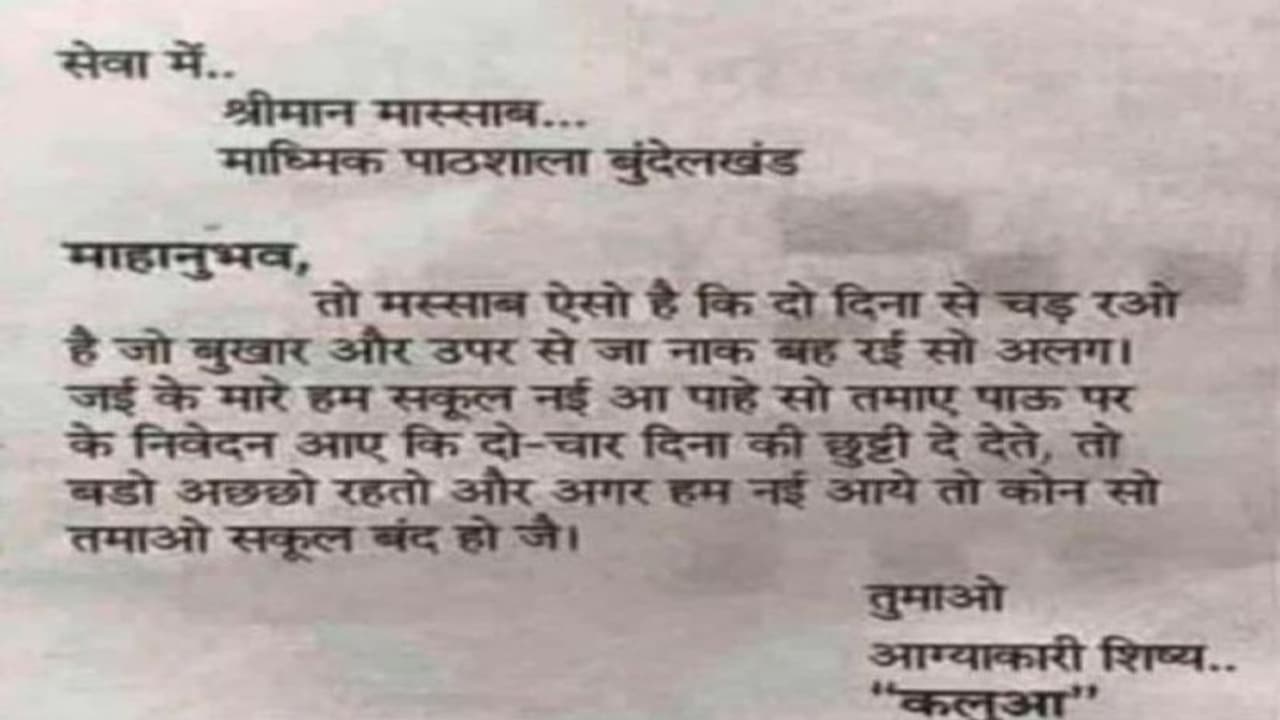 सेवा में..
श्रीमान मास्साब...
माध्मिक पाठशाला बुंदेलखंड
माहानुभव,
तो मस्साब ऐसो है कि दो दिना से चड़ रओ
है जो बुखार और उपर से जा नाक बह रई सो अलग।
जई के मारे हम सकूल नई आ पाहे सो तमाए पाऊ पर
के निवेदन आए कि दो-चार दिना की छुट्टी दे देते, तो
बडो अछछो रहतो और अगर हम नई आये तो कोन सो
तमाओ सकूल बंद हो जै।
तुमाओ
आग्याकारी शिष्य..
“कलुआ”